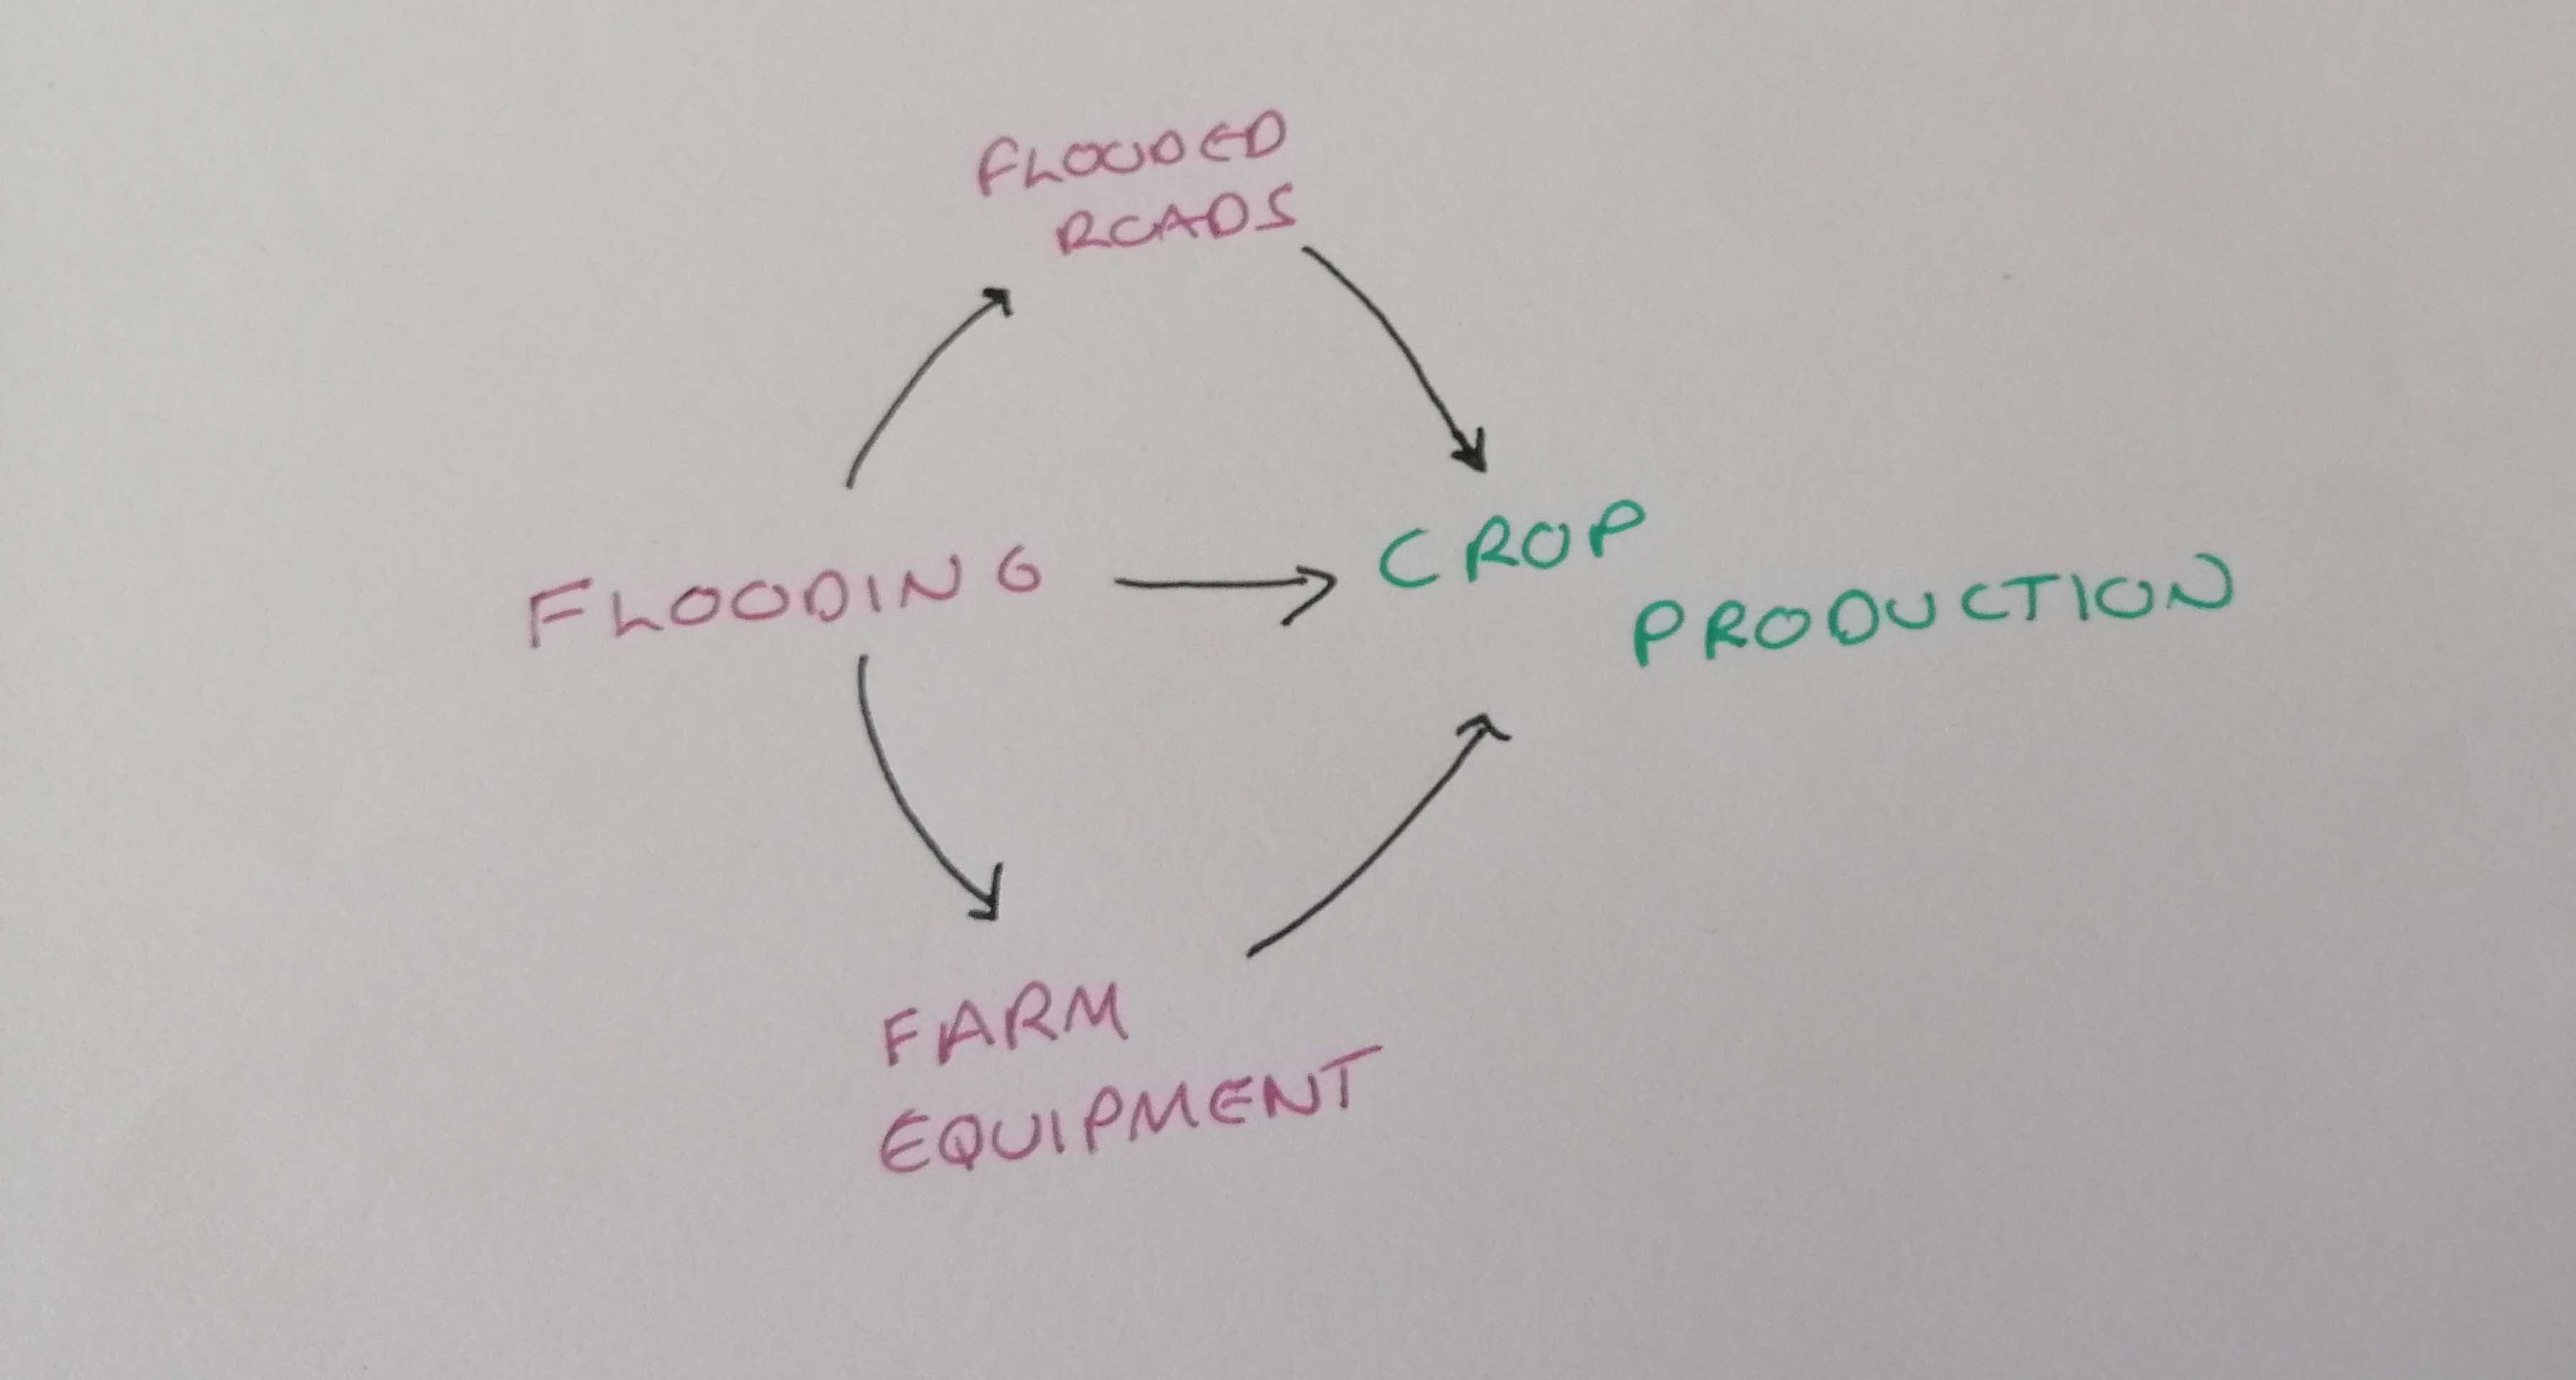 FLOODED
ROADS
FLOODING
CROP
PRODUCTION
FARM
EQUIPMENT